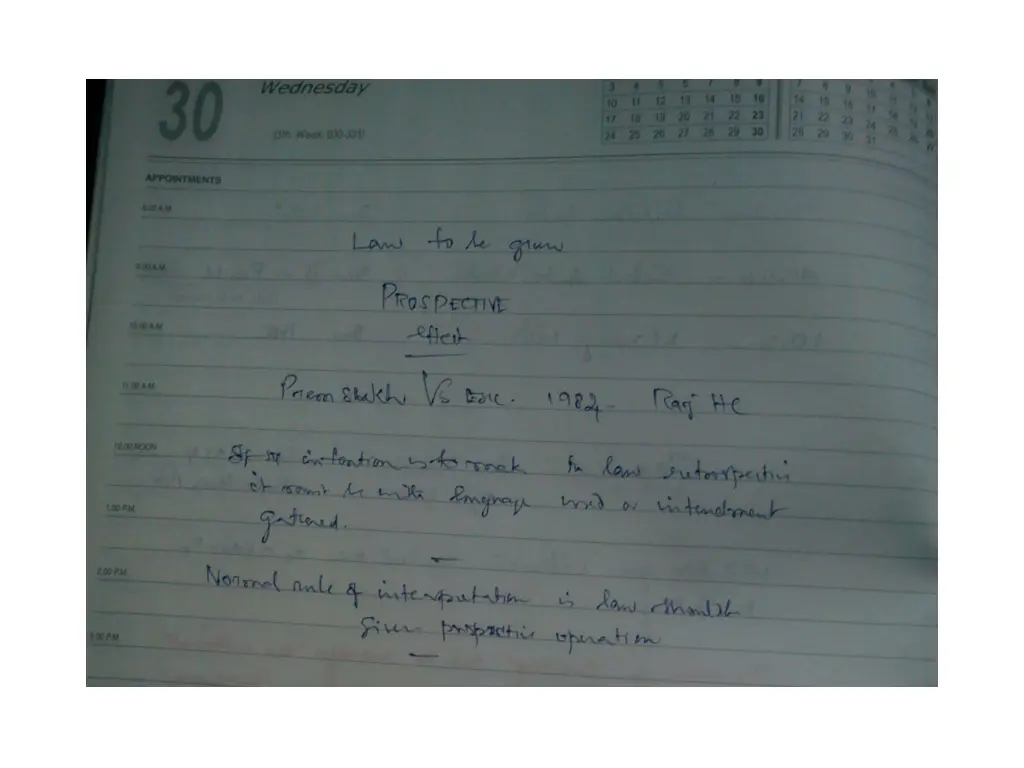 30
Wednesday
10 11 12 13 14 15 16
17 18 19 20 21 22 23
24 25 26 27 28 29 30
14 15 16
21 22 23 24
28 29 30 31
APPOINTMENTS
8.00 A.M
Law to be given
9.00 A.M
PROSPECTIVE
10.00 A.M
effect
11.00 A.M
Vs 1982 Raj HC
12.00 NOON
If the intention is to make the law retrospective
it must be with language used or intendment
1.00 P.M.
gathered.
2.00 P.M.
Normal rule of interpretation is law should be
given prospective operation
3.00 P.M.